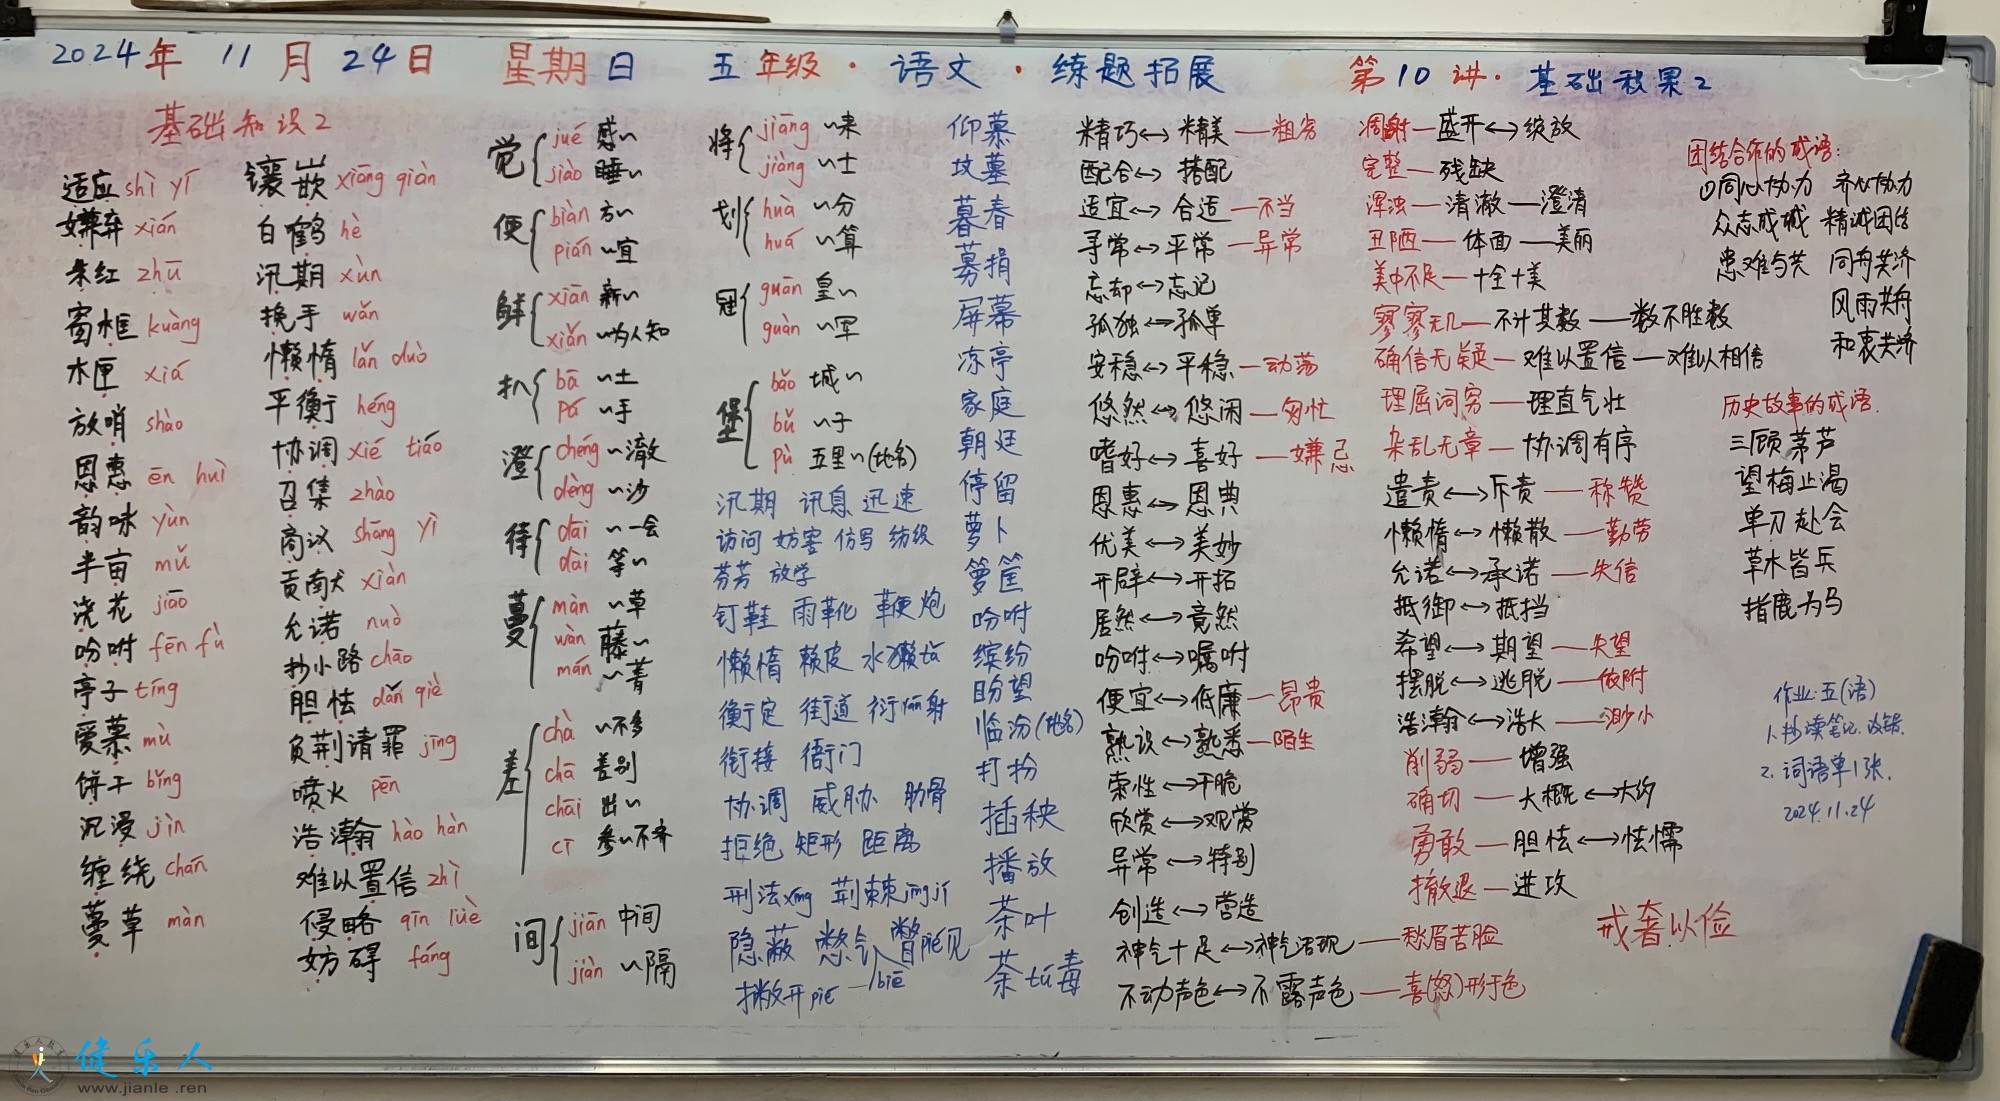 2024年 11月 24日 星期日 五年级·语文·练题拓展 第10讲·基础秋果2
基础知识2
适应 shì yī
嫌弃 xián
朱红 zhū
窗框 kuàng
木匣 xiá
放哨 shào
恩惠 ēn huì
韵味 yùn
半亩 mǔ
浇花 jiāo
吩咐 fēn fù
亭子 tíng
爱慕 mù
饼干 bǐng
沉浸 jìn
缠绕 chán
蔓草 màn
镶嵌 xiāng qiàn
白鹤 hè
汛期 xùn
挽手 wǎn
懒惰 lǎn duò
平衡 héng
协调 xié tiáo
召集 zhào
商议 shāng yì
贡献 xiàn
允诺 nuò
抄小路 chāo
胆怯 dǎn qiè
负荆请罪 jīng
喷火 pēn
浩瀚 hào hàn
难以置信 zhì
侵略 qīn lüè
妨碍 fáng
觉 { jué 感~
jiào 睡~
便 { biàn 方~
pián ~宜
鲜 { xiān 新~
xiǎn ~为人知
扒 { bā ~土
pá ~手
澄 { chéng ~澈
dèng ~沙
待 { dāi ~一会
dài 等~
蔓 { màn ~草
wàn 藤~
mán ~菁
差 { chà ~不多
chā 差别
chāi 出~
cī 参~不齐
间 { jiān 中间
jiàn ~隔
将 { jiāng ~来
jiàng ~士
划 { huà ~分
huá ~算
冠 { guān 皇~
guàn ~军
堡 { bǎo 城~
bǔ ~子
pù 五里~(地名)
汛期 讯息 迅速
访问 妨害 仿写 纺织
芬芳 放学
钉鞋 雨靴 鞭炮
懒惰 赖皮 水獭tǎ
衡定 街道 衍 俯射
衔接 衙门
协调 威胁 肋骨
拒绝 矩形 距离
刑法xíng 荆棘jīng jí
隐蔽 憋气 瞥见
撇开piē biē
仰慕
坟墓
暮春
募捐
屏幕
凉亭
家庭
朝廷
停留
萝卜
箩筐
吩咐
缤纷
盼望
临汾(地名)
打扮
插秧
播放
茶叶
荼tú毒
精巧↔精美—粗劣
配合↔搭配
适宜↔合适—不当
寻常↔平常—异常
忘却↔忘记
孤独↔孤单
安稳↔平稳—动荡
悠然↔悠闲—匆忙
嗜好↔喜好—嫌忌
恩惠↔恩典
优美↔美妙
开辟↔开拓
居然↔竟然
吩咐↔嘱咐
便宜↔低廉—昂贵
熟识↔熟悉—陌生
索性↔干脆
欣赏↔观赏
异常↔特别
创造↔营造
神气十足↔神气活现—愁眉苦脸
不动声色↔不露声色—喜(怒)形于色
凋谢—盛开↔绽放
完整—残缺
浑浊—清澈—澄清
丑陋—体面—美丽
美中不足—十全十美
寥寥无几—不计其数—数不胜数
确信无疑—难以置信—难以相信
理屈词穷—理直气壮
杂乱无章—协调有序
遣责↔斥责—称赞
懒惰↔懒散—勤劳
允诺↔承诺—失信
抵御↔抵挡
希望↔期望—失望
摆脱↔逃脱—依附
浩瀚↔浩大—渺小
削弱—增强
确切—大概↔大约
勇敢—胆怯↔怯懦
撤退—进攻
戒奢以俭
团结合作的成语:
①同心协力 齐心协力
众志成城 精诚团结
患难与共 同舟共济
风雨共舟
和衷共济
历史故事的成语.
三顾茅芦
望梅止渴
单刀赴会
草木皆兵
指鹿为马
作业:五(语)
1.抄读笔记.改错.
2.词语单1张.
2024.11.24
健乐人
www.jianle.ren